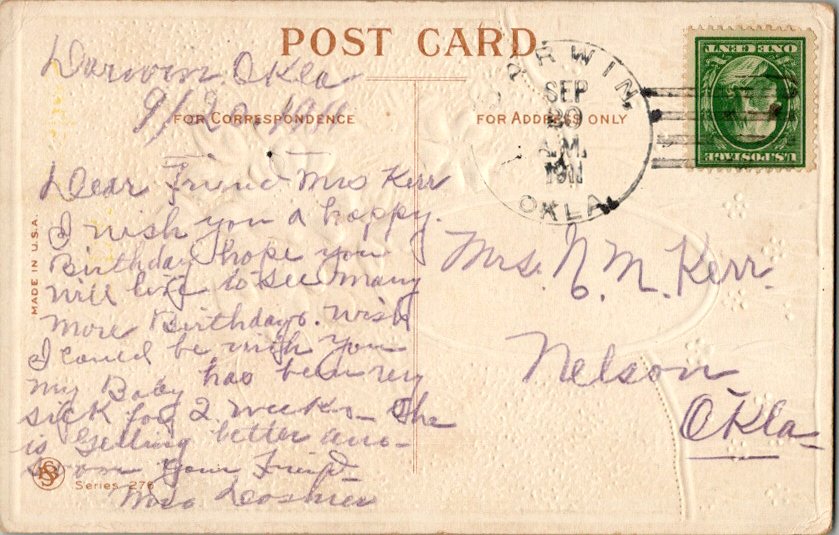 POST CARD
Darwin Okla
9/20 1911
FOR CORRESPONDENCE
Dear Friend Mrs Kerr
I wish you a happy.
Birthday hope you
will live to see many
more Birthdays. wish
I could be with you
my Baby has been very
sick for 2 weeks - She
is getting better
from your Friend
Series 276
MADE IN U.S.A.
FOR ADDRESS ONLY
DARWIN
SEP
20
A.M.
1911
OKLA.
ONE CENT
U.S. POSTAGE
Mrs. N. M. Kerr.
Nelson
Okla